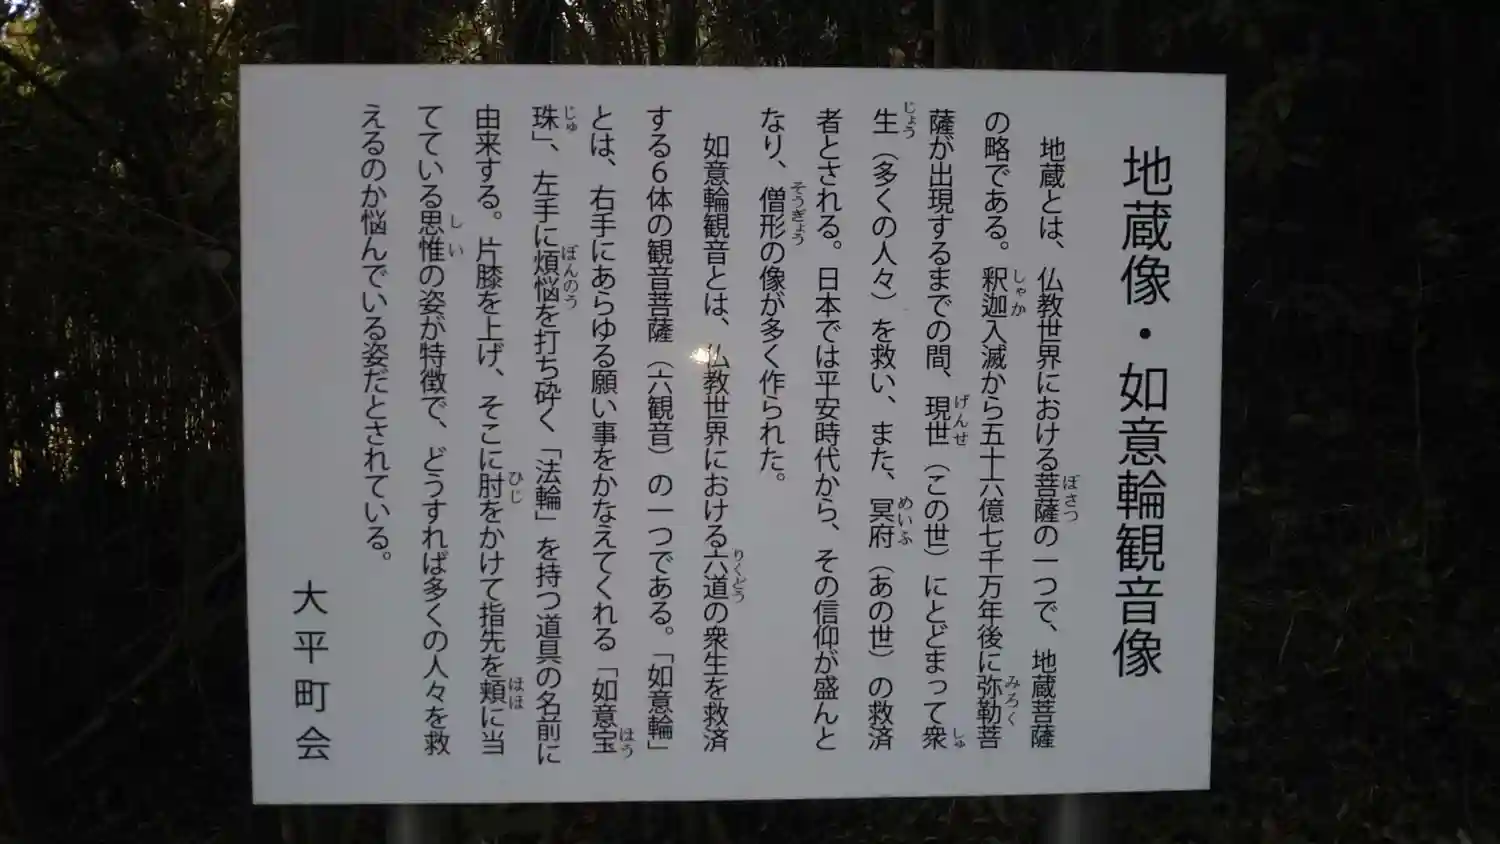 地蔵像・如意輪観音像
地蔵とは、仏教世界における菩薩の一つで、地蔵菩薩
の略である。釈迦入滅から五十六億七千万年後に弥勒菩
薩が出現するまでの間、現世（この世）にとどまって衆
生（多くの人々）を救い、また、冥府（あの世）の救済
者とされる。日本では平安時代から、その信仰が盛んと
なり、僧形の像が多く作られた。
如意輪観音とは、仏教世界における六道の衆生を救済
する６体の観音菩薩（六観音）の一つである。「如意輪」
とは、右手にあらゆる願い事をかなえてくれる「如意宝
珠」、左手に煩悩を打ち砕く「法輪」を持つ道具の名前に
由来する。片膝を上げ、そこに肘をかけて指先を頬に当
てている思惟の姿が特徴で、どうすれば多くの人々を救
えるのか悩んでいる姿だとされている。
大平町会